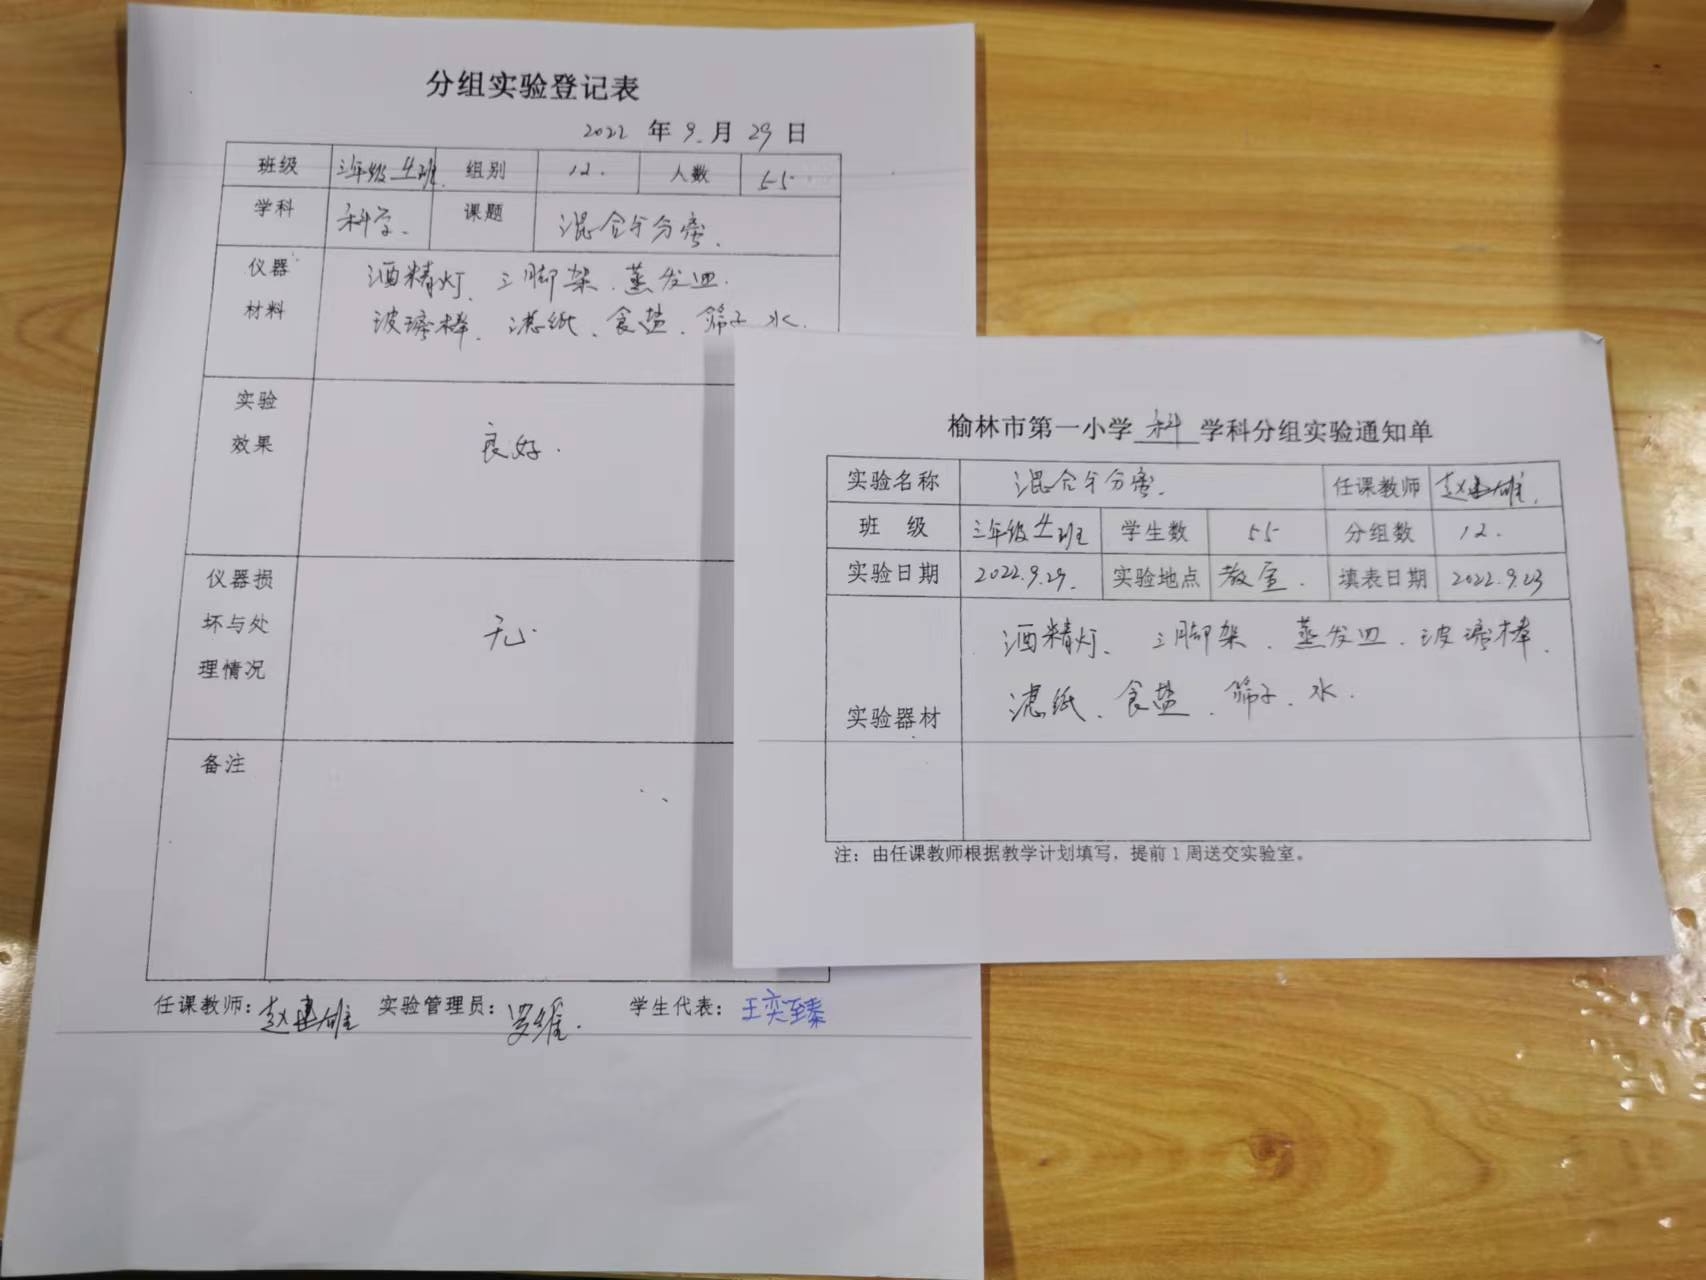 分组实验登记表
2022 年 9 月 29 日
班级 三年级 4班 组别 12. 人数 55
学科 科学. 课题 混合与分离.
仪器 酒精灯、三脚架、蒸发皿、
材料 玻璃棒、滤纸、食盐、筛子、水.
实验
效果 良好.
仪器损
坏与处 无.
理情况
备注
任课教师: 赵建雄 实验管理员: 罗维. 学生代表: 王奕臻
榆林市第一小学 科 学科分组实验通知单
实验名称 混合与分离. 任课教师 赵建雄.
班 级 三年级 4班 学生数 55 分组数 12.
实验日期 2022.9.29. 实验地点 教室. 填表日期 2022.9.23
酒精灯、三脚架、蒸发皿、玻璃棒、
滤纸、食盐、筛子、水.
实验器材
注: 由任课教师根据教学计划填写, 提前 1 周送交实验室。